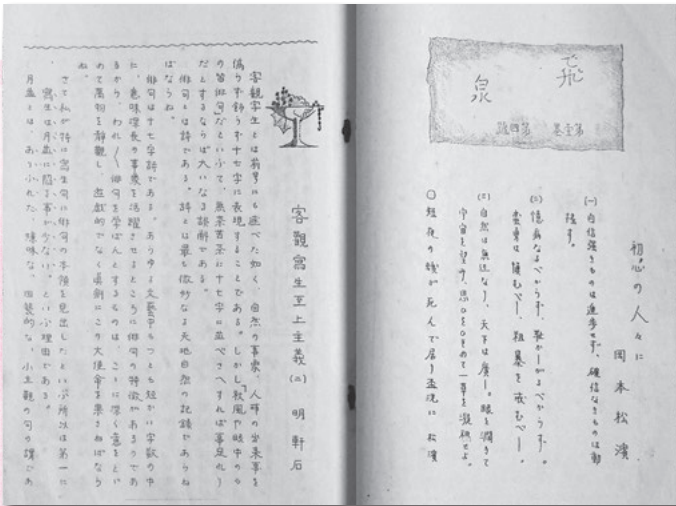 飛泉
第壹巻 第四號
初心の人々に
岡本松濱
(一) 自信強きものは進歩せず、確信なきものは動
揺す。
(二) 憶病なるべからず、べからず。
蛮勇はべし、粗暴を戒むべし。
(三) 自然は無辺なり、天下は廣し。眼を濶うて
宇宙を望み、思ひをひそめて一草を凝視せよ。
〇短夜の蛾が死んで居り盃洗に 松濱
客觀寫生至上主義(二) 明軒石
客觀寫生とは前号にも述べた如く、自然の事象、人事の出来事を
偽らず飾らず十七字に表現することである。しかし「秋風や眼中のも
の皆俳句」だといふて、無茶苦茶に十七字に並べさへすれば事足れり
だとするならば大いなる誤解である。
俳句とは詩である。詩とは最も微妙なる天地自然の記録であらね
ばならね。
俳句は十七字詩である。あらゆる文藝中もつとも短かい字数の中
に、意味深長の事象を活躍させるところに俳句の特徴があるのであ
るから、われ〳〵俳句を学ばんとするものは、ここに深く意をとい
めて萬物を静觀し、遊戯的でなく真剣にこの大使命を果さねばなら
ね。
さて私が特に寫生句に俳句の本領を見出したといふ所以は第一に
寫生は月並に陥る事が少ない。といふ理由である。
月並とは、ありふれた、嫌味な、田舎的な、小主觀の句の謂であ